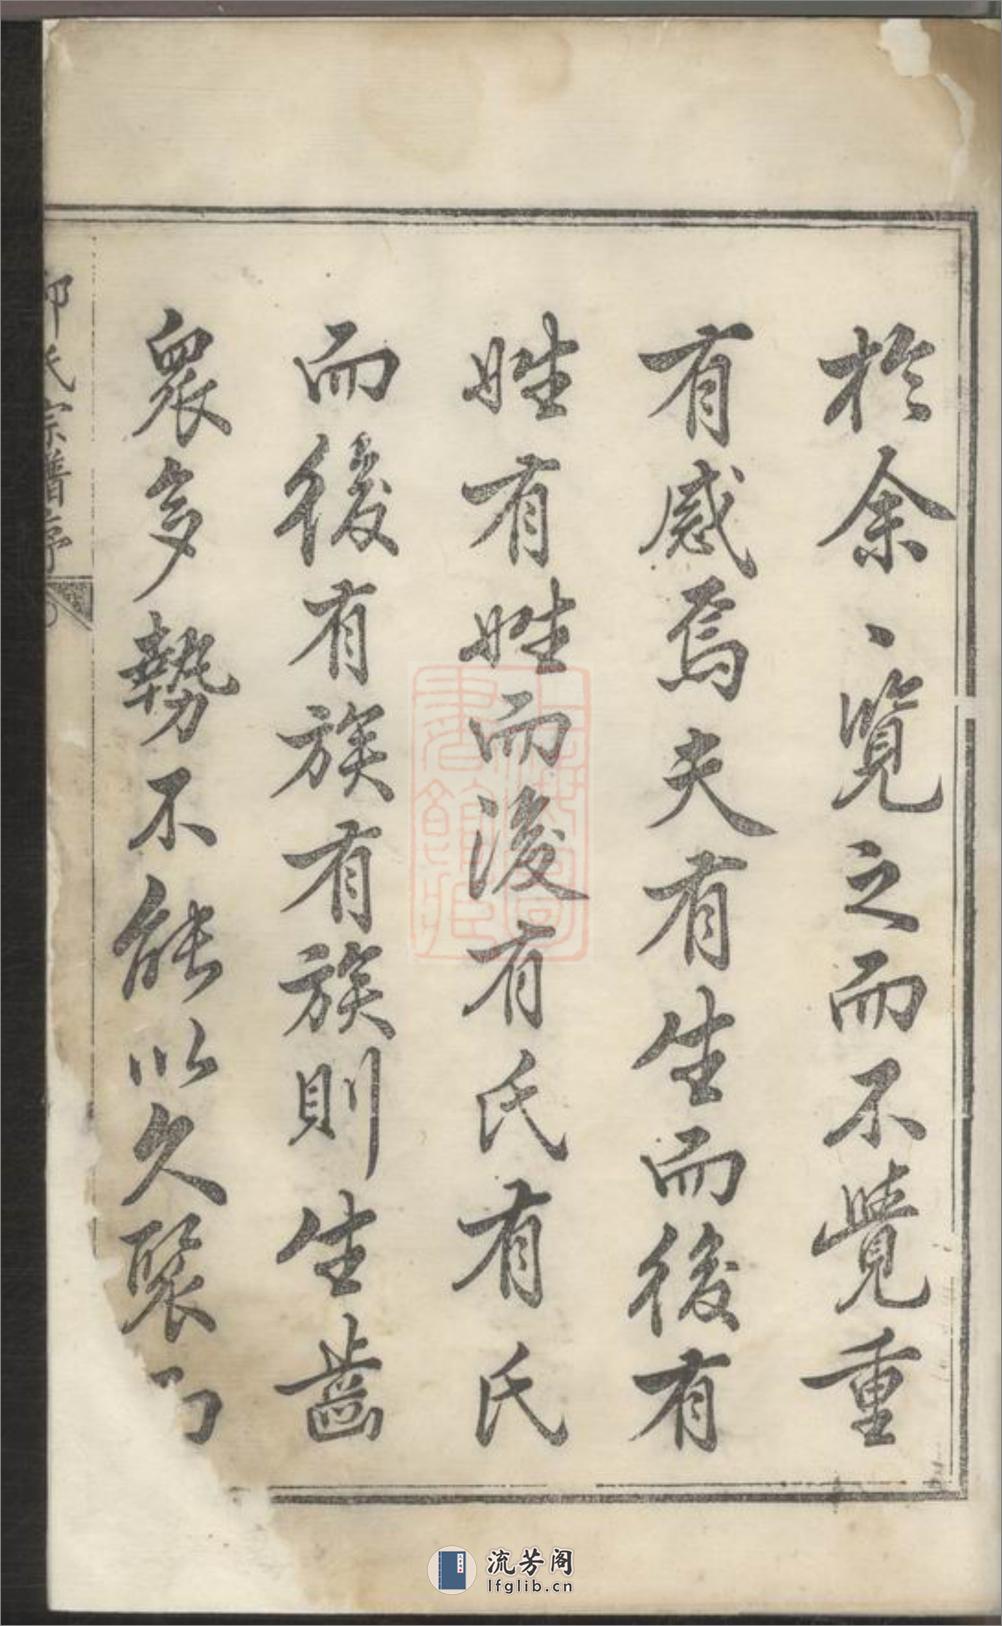 於余、覽之而不覺重
有感焉夫有生而後有
姓有姓而後有氏有氏
而後有族有族則生齒
衆多勢不能以久聚
氏宗譜序
流芳阁
lfglib.cn